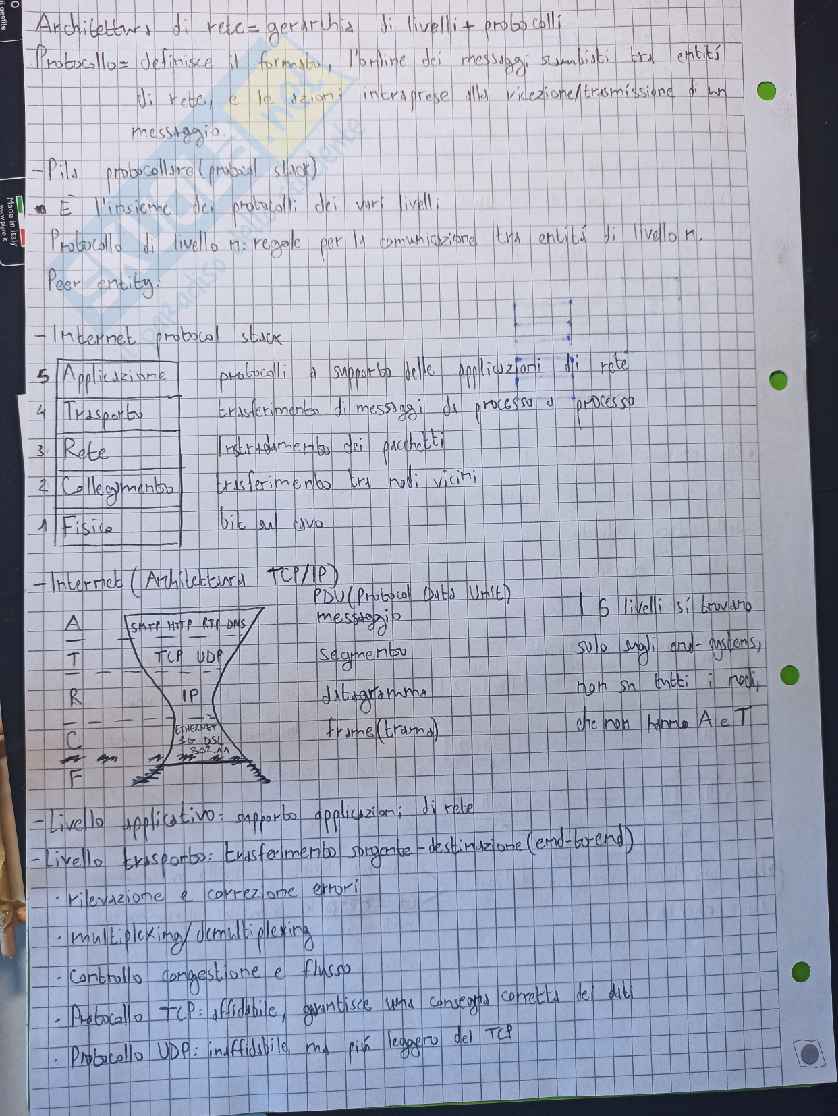 Architettura di rete = gerarchia di livelli + protocolli
Protocollo = definisce il formato, l'ordine dei messaggi scambiati tra entità
di rete, e le azioni intraprese alla ricezione/trasmissione di un
messaggio.
- Pila protocollare (protocol stack)
• È l'insieme dei protocolli dei vari livelli.
Protocollo di livello n: regole per la comunicazione tra entità di livello n.
Peer entity.
- Internet protocol stack
5 Applicazione protocolli a supporto delle applicazioni di rete
4 Trasporto trasferimento di messaggi da processo a processo
3 Rete Instradamento dei pacchetti
2 Collegamento trasferimento tra nodi vicini
1 Fisico bit sul cavo
- Internet (Architettura TCP/IP)
PDU (Protocol Data Unit)
A SMTP HTTP RTP DNS messaggio I 5 livelli si trovano
T TCP UDP segmento solo sugli end-systems,
R IP datagramma non su tutti i nodi,
C ETHERNET 3G DSL 802.11 frame (trama) che non hanno A e T
F
- Livello applicativo: supporto applicazioni di rete
- Livello trasporto: trasferimento sorgente-destinazione (end-to-end)
· rilevazione e correzione errori
· multiplexing/demultiplexing
· controllo congestione e flusso
· Protocollo TCP: affidabile, garantisce una consegna corretta dei dati
· Protocollo UDP: inaffidabile ma più leggero del TCP
SKUOLA.net
Made in Italy